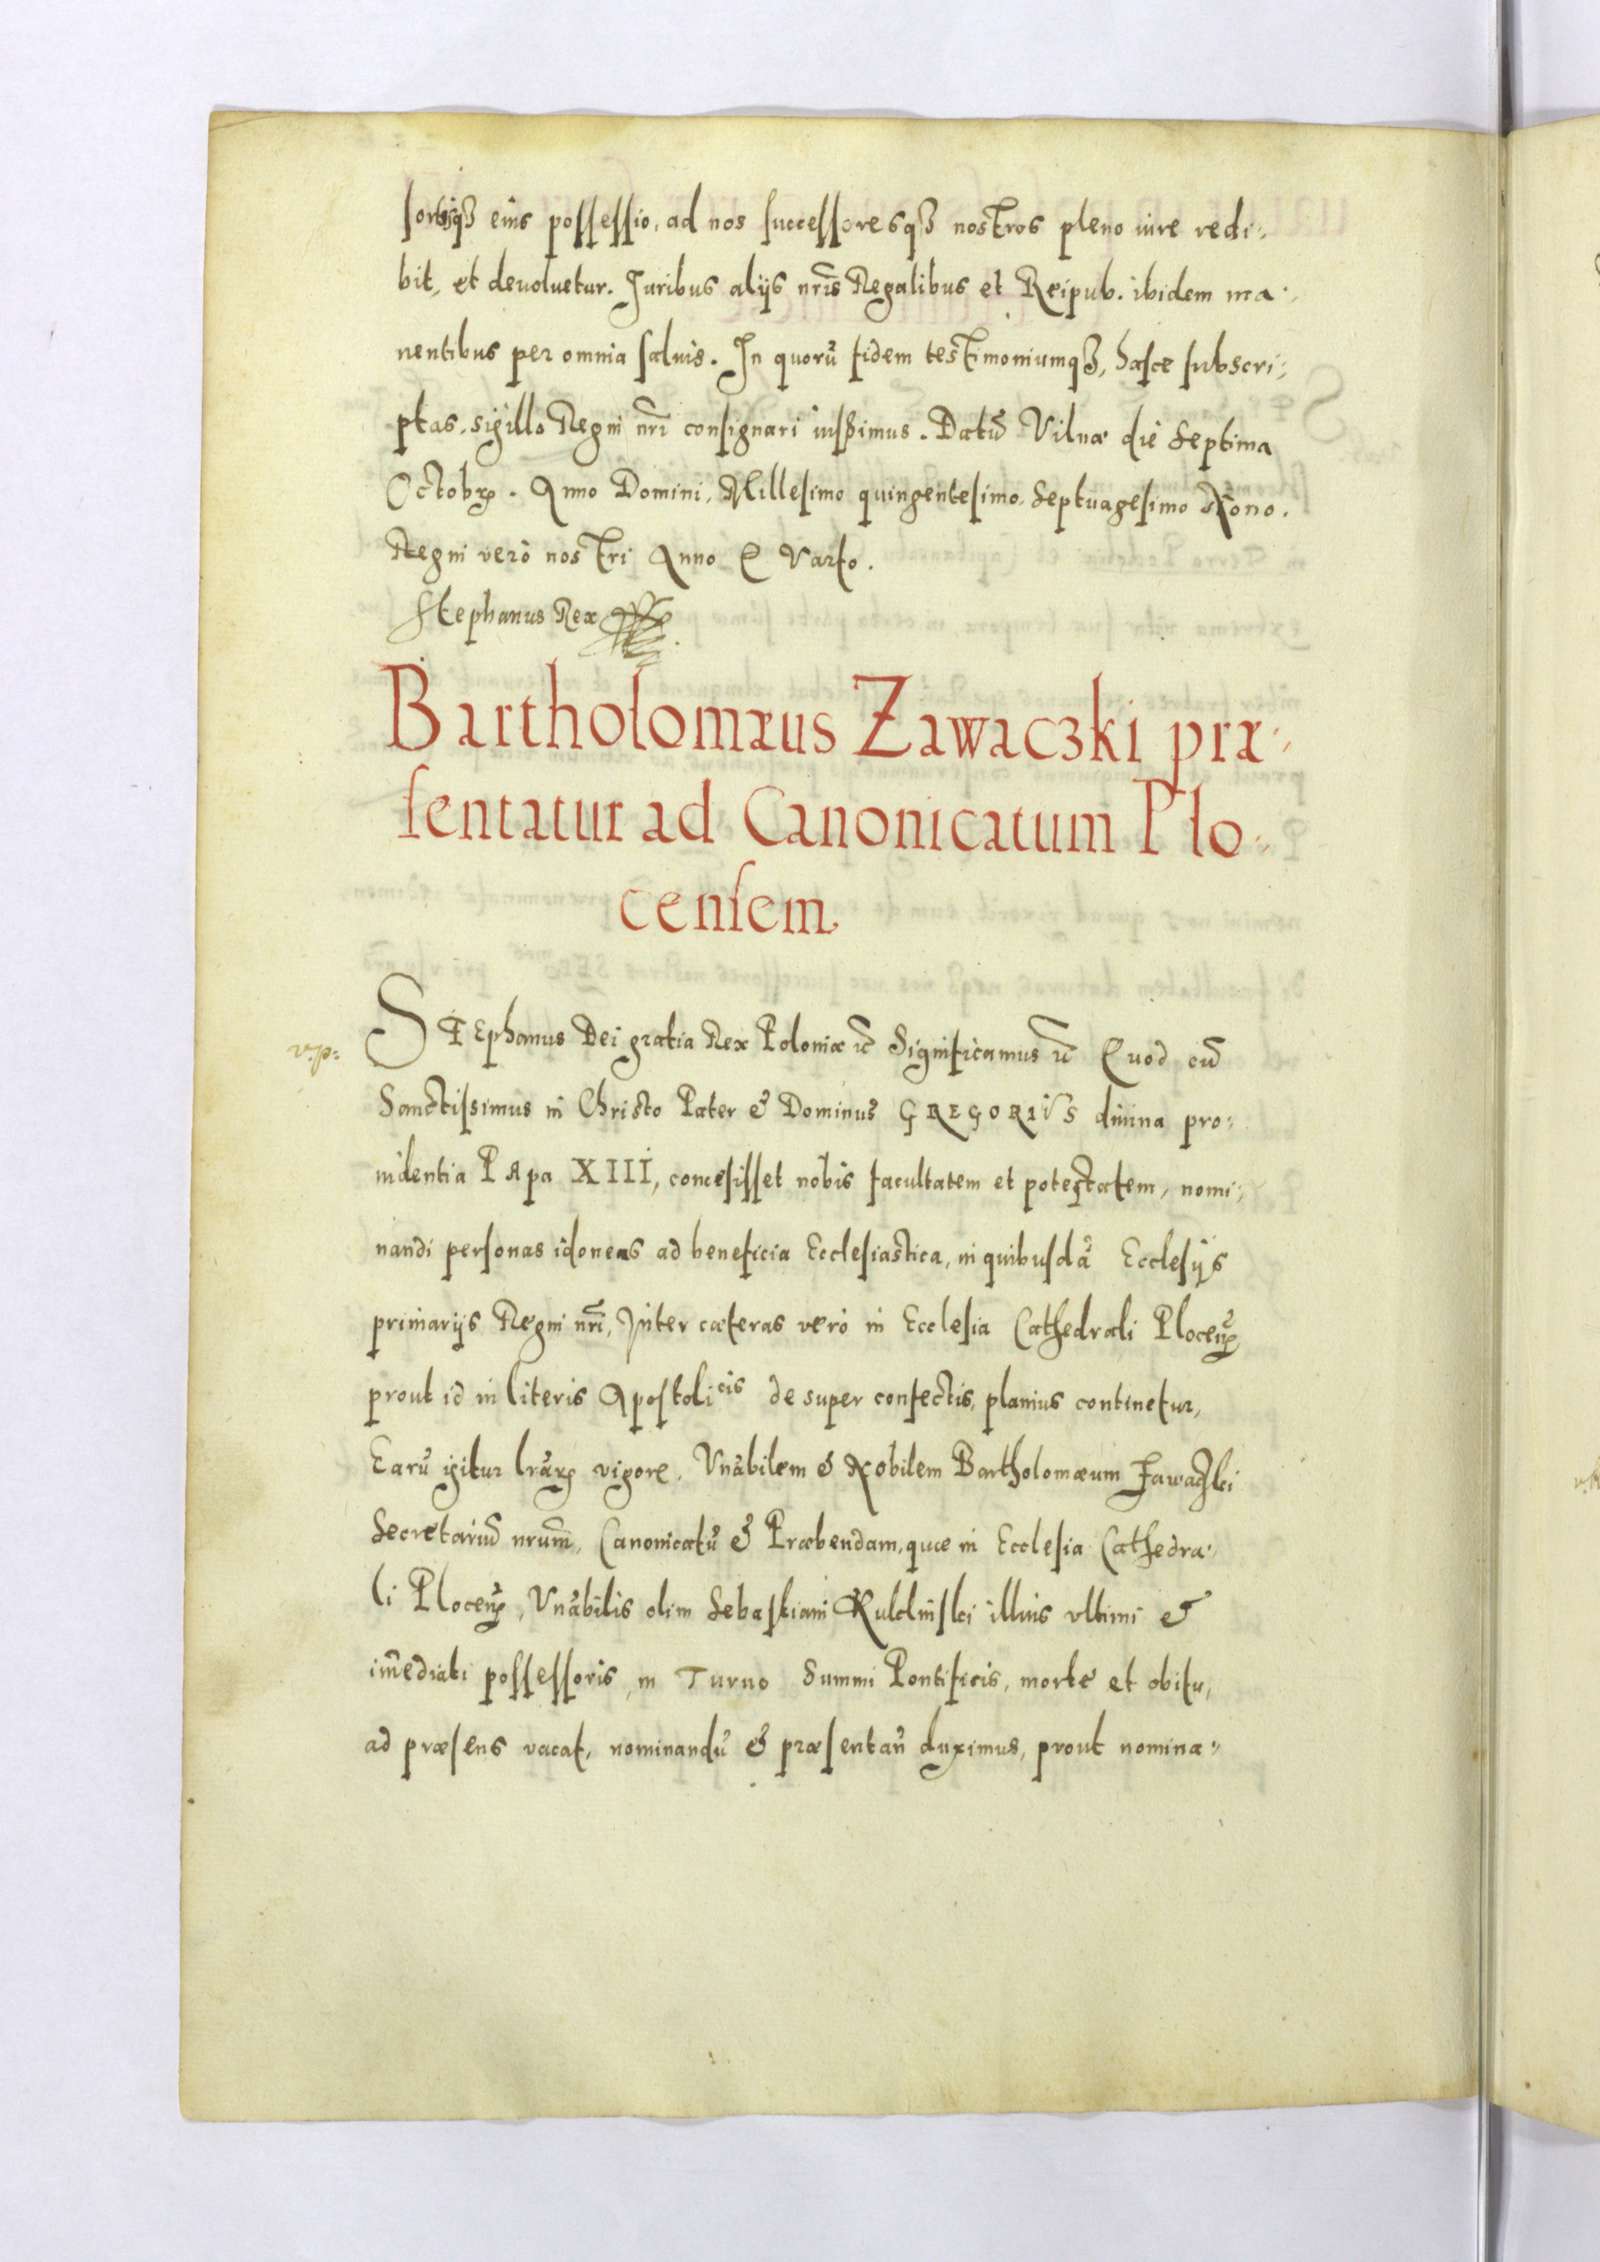 eius possessio, ad nos successoresqꝫ nostros pleno iure redi-
bit, et devoluetur. Juribus alijs nr̃is Regalibus et Reipub. ibidem ma-
nentibus per omnia saluis. In quorũ fidem testimoniumqꝫ, hasce subscri-
ptas, sigillo Regni nr̃i consignari iussimus. Datũ Vilnæ die Septima
Octobrꝭ. Anno Domini, Millesimo quingentesimo Septuagesimo Nono.
Regni verò nostri Anno Quarto.
Stephanus Rex
Bartholomæus Zawaczki præ-
sentatur ad Canonicatum Plo-
censem
STEphanus Dei gratia Rex Poloniæ ꝛc̃ Significamus ꝛc̃ Quod cũ
Sanctissimus in Christo Pater & Dominus GREGORIVS diuina pro-
uidentia PApa XIII, concesisset nobis facultatem et potestatem, nomi-
nandi personas idoneas ad beneficia Ecclesiastica, in quibusdã Ecclesijs
primarijs Regni nr̃i, Inter cæteras verò in Ecclesia Cathedrali Plocen̄ꝭ
prout id in literis Apostolicis desuper confectis, planius continetur,
Earũ igitur lr̃arꝭ vigore, Vnãbilem & Nobilem Bartholomæum Zawaczki
Secretariũ nrum̃, Canonicatũ & Præbendam, quæ in Ecclesia Cathedra-
li Plocen̄ꝭ, Vnãbilis olim Sebastiani illius vltimi &
im̃ediati possessoris, in Turno Summi Pontificis, morte et obitu,
ad præsens vacat, nominandũ & præsentan̄ duximus, prout nomina-